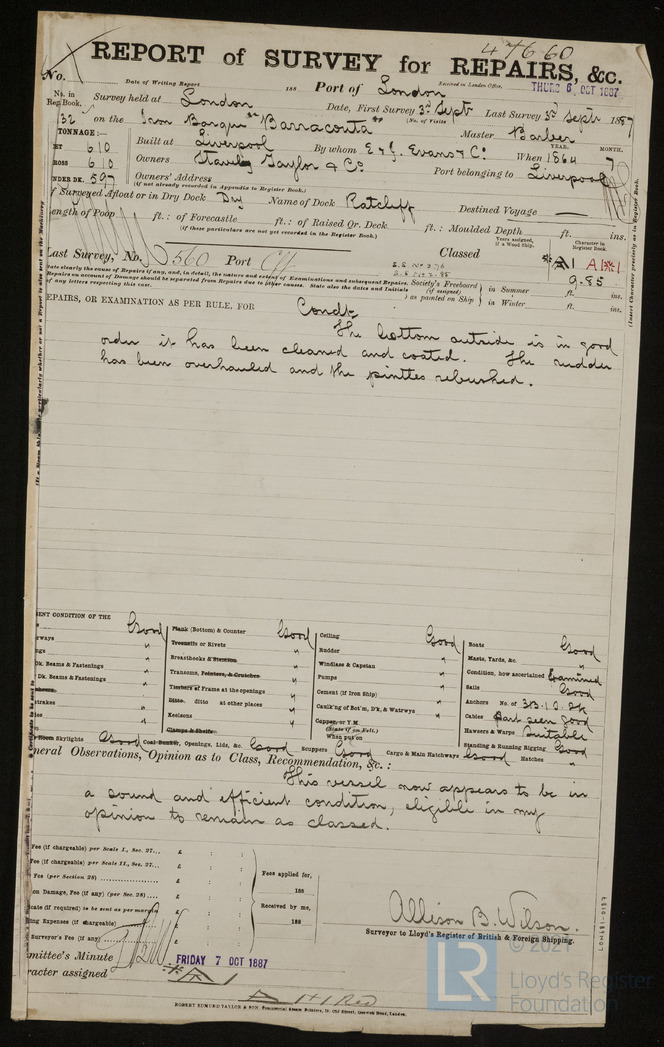 47660
REPORT of SURVEY for REPAIRS, &c.
No. Date of Writing Report 188 Port of London Received in London Office, THURS 6 OCT 1887
No. in Reg. Book. Survey held at London Date, First Survey 3rd Sept Last Survey 3rd Septr 1887
(No. of Visits )
132 on the Iron Barque "Barracouta" Master Barber
TONNAGE:— Built at Liverpool By whom E & J. Evans & Co. When 1864 YEAR. MONTH. 7
ET 610
ROSS 610 Owners Stavely Taylor & Co Port belonging to Liverpool
NDER DK. 597 Owners' Address
(if not already recorded in Appendix to Register Book.)
If Surveyed Afloat or in Dry Dock Dry Name of Dock Ratcliff Destined Voyage —
ength of Poop ft.: of Forecastle ft.: of Raised Qr. Deck ft.: Moulded Depth ft. ins.
(If these particulars are not yet recorded in the Register Book.)
Last Survey, No. 560 Port Classed
Years assigned, if a Wood Ship.
Character in Register Book.
A1
9.85
State clearly the cause of Repairs if any, and, in detail, the nature and extent of Examinations and subsequent Repairs.
Repairs on account of Damage should be separated from Repairs due to other causes. State also the dates and Initials
of any letters respecting this case.
Society's Freeboard (if assigned) as painted on Ship } in Summer ft. ins.
in Winter ft. ins.
EPAIRS, OR EXAMINATION AS PER RULE, FOR Condt.
The bottom outside is in good
order it has been cleaned and coated. The rudder
has been overhauled and the pintles rebushed.
SENT CONDITION OF THE
Good
Plank (Bottom) & Counter Good
Treenails or Rivets "
Breasthooks & Stemson "
Transoms, Pointers, & Crutches "
Timbers of Frame at the openings "
Ditto. ditto at other places "
Keelsons "
Clamps & Shelfs
Dk. Beams & Fastenings "
Dk. Beams & Fastenings "
Ceiling Good
Rudder "
Windlass & Capstan "
Pumps "
Cement (if Iron Ship) "
Caulk'ng of Bot'm, D'k, & Watrwys "
Copper, or Y.M.
(State if on Felt.)
When put on
Boats Good
Masts, Yards, &c. "
Condition, how ascertained Examined
Sails Good
Anchors No. of 3B. 1S. 2K
Cables Part seen good
Hawsers & Warps Suitable
Standing & Running Rigging Good
Room Skylights Good Coal Bunker, Openings, Lids, &c. Good Scuppers Good Cargo & Main Hatchways Good Hatches "
neral Observations, Opinion as to Class, Recommendation, &c.:
This vessel now appears to be in
a sound and efficient condition, eligible in my
opinion to remain as classed.
Fee (if chargeable) per Scale I., Sec. 27... £ : :
Fee (if chargeable) per Scale II., Sec. 27... £ : :
Fee (per Section 28) £ : :
on Damage, Fee (if any) (per Sec. 28) £ : :
cate (if required) to be sent as per margin £ : :
ing Expenses (if chargeable) £ : :
Surveyor's Fee (if any) £ : :
Fees applied for,
188
Received by me,
188
Allison B. Wilson.
Surveyor to Lloyd's Register of British & Foreign Shipping.
mittee's Minute FRIDAY 7 OCT 1887
racter assigned A 1
ROBERT EDMUND TAYLOR & SON, Commercial Steam Printers, 19, Old Street, Goswell Road, London.
LON681-0187
LR © 2021
Lloyd's Register
Foundation